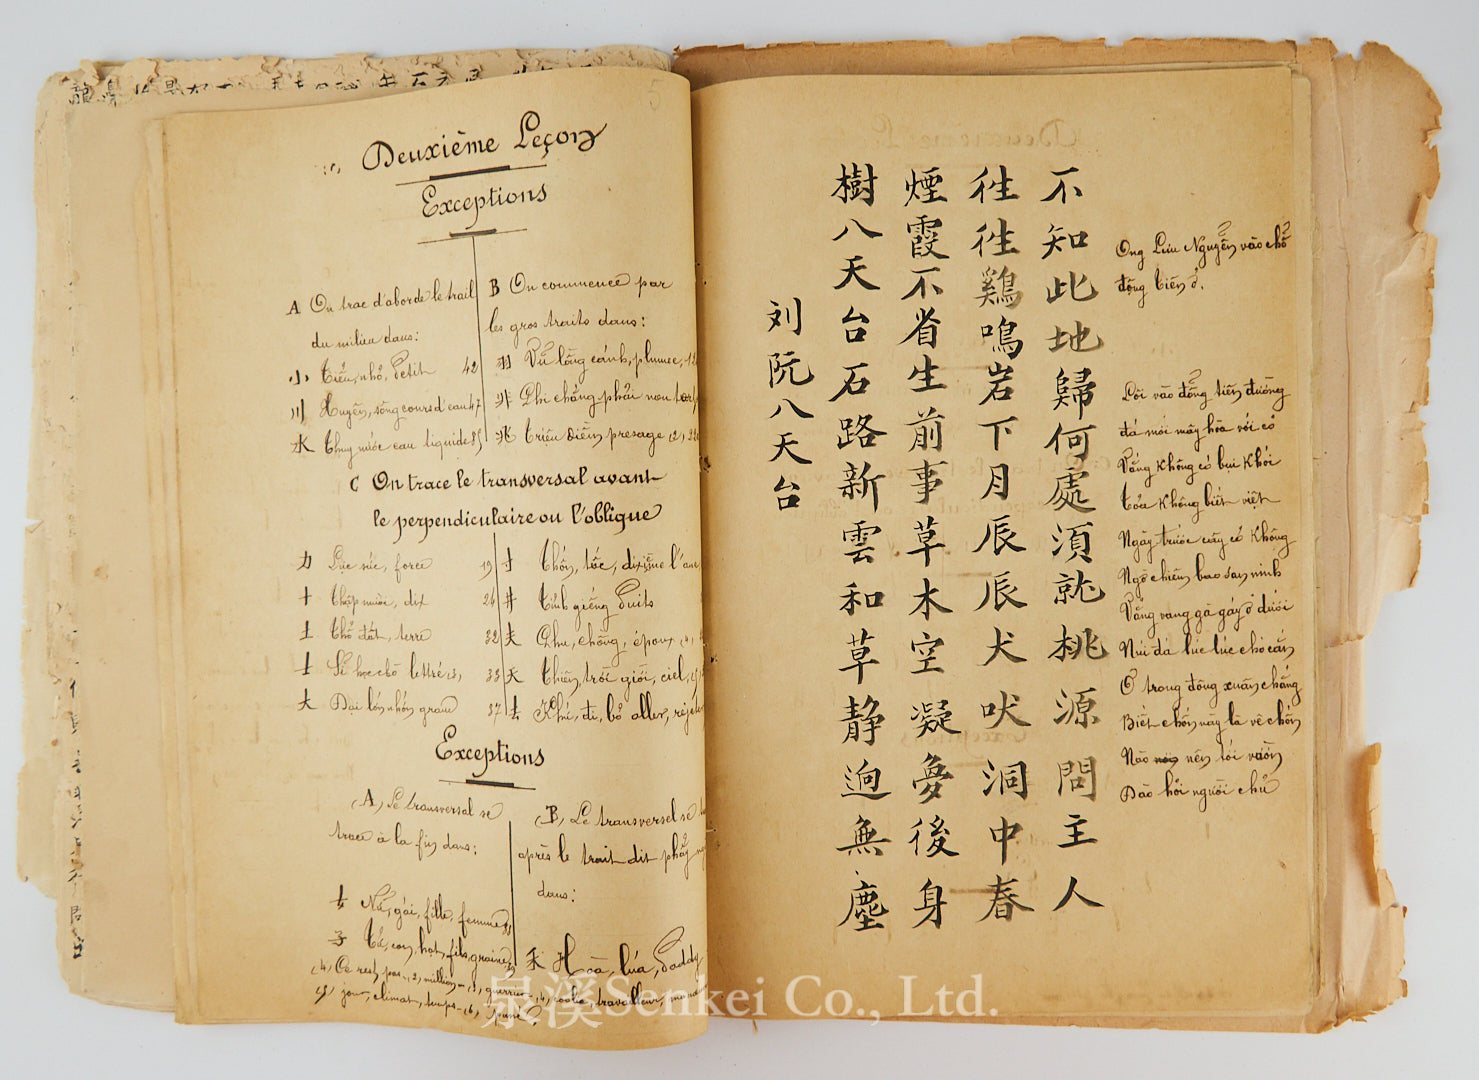 Deuxième Leçon
Exceptions
A On trac d'aborde le trail
du milieu dans:
小 tiểu, nhỏ, Petit 42
川 Xuyên, sông cours d'eau 47
水 thuỷ nước eau liquide 85
B On commence par
les gros traits dans:
羽 Vũ lông cánh, plumee,
非 Phi chẳng phải non
兆 triệu điềm presage
C On trace le transversal avant
le perpendiculaire ou l'oblique
力 Lực sức, force 19
十 thập mười, dix 24
土 thổ đất, terre 32
士 Sĩ học trò lettré 33
大 Đại lớn nhớn grand 37
寸 thốn, tấc, dixième l'aune
井 tỉnh giếng Puits
夫 Phu, chồng, époux
天 thiên, trời giời, ciel,
去 Khứ, đi, bỏ aller,
Exceptions
(A) Le transversal se
trace à la fin dans:
女 Nữ, gái, fille, femme
子 tử, con, hạt, fils, graine
(B) Le transversel se
après le trait dit phẩy
dans:
禾 Hoà, lúa, Paddy
5
不知此地歸何處須就桃源問主人
徃徃鷄鳴岩下月辰辰犬吠洞中春
煙霞不省生前事草木空凝夢後身
樹八天台石路新雲和草静逈無塵
刘阮八天台
Ong Lưu Nguyễn vào chỗ
động tiên ở.
Lối vào động tiên đường
đá mới mây hoà với cỏ
Vắng không có bụi khói
toả không biết việt
Ngày trước cây cỏ không
Ngỡ chiêm bao san mình
Vẳng vang gà gáy ở dưới
Núi đá lúc lúc chó cắn
Ở trong động xuân chẳng
Biết chốn này là về chốn
Nào nên tới vườn
Đào hỏi người chủ
泉溪Senkei Co., Ltd.